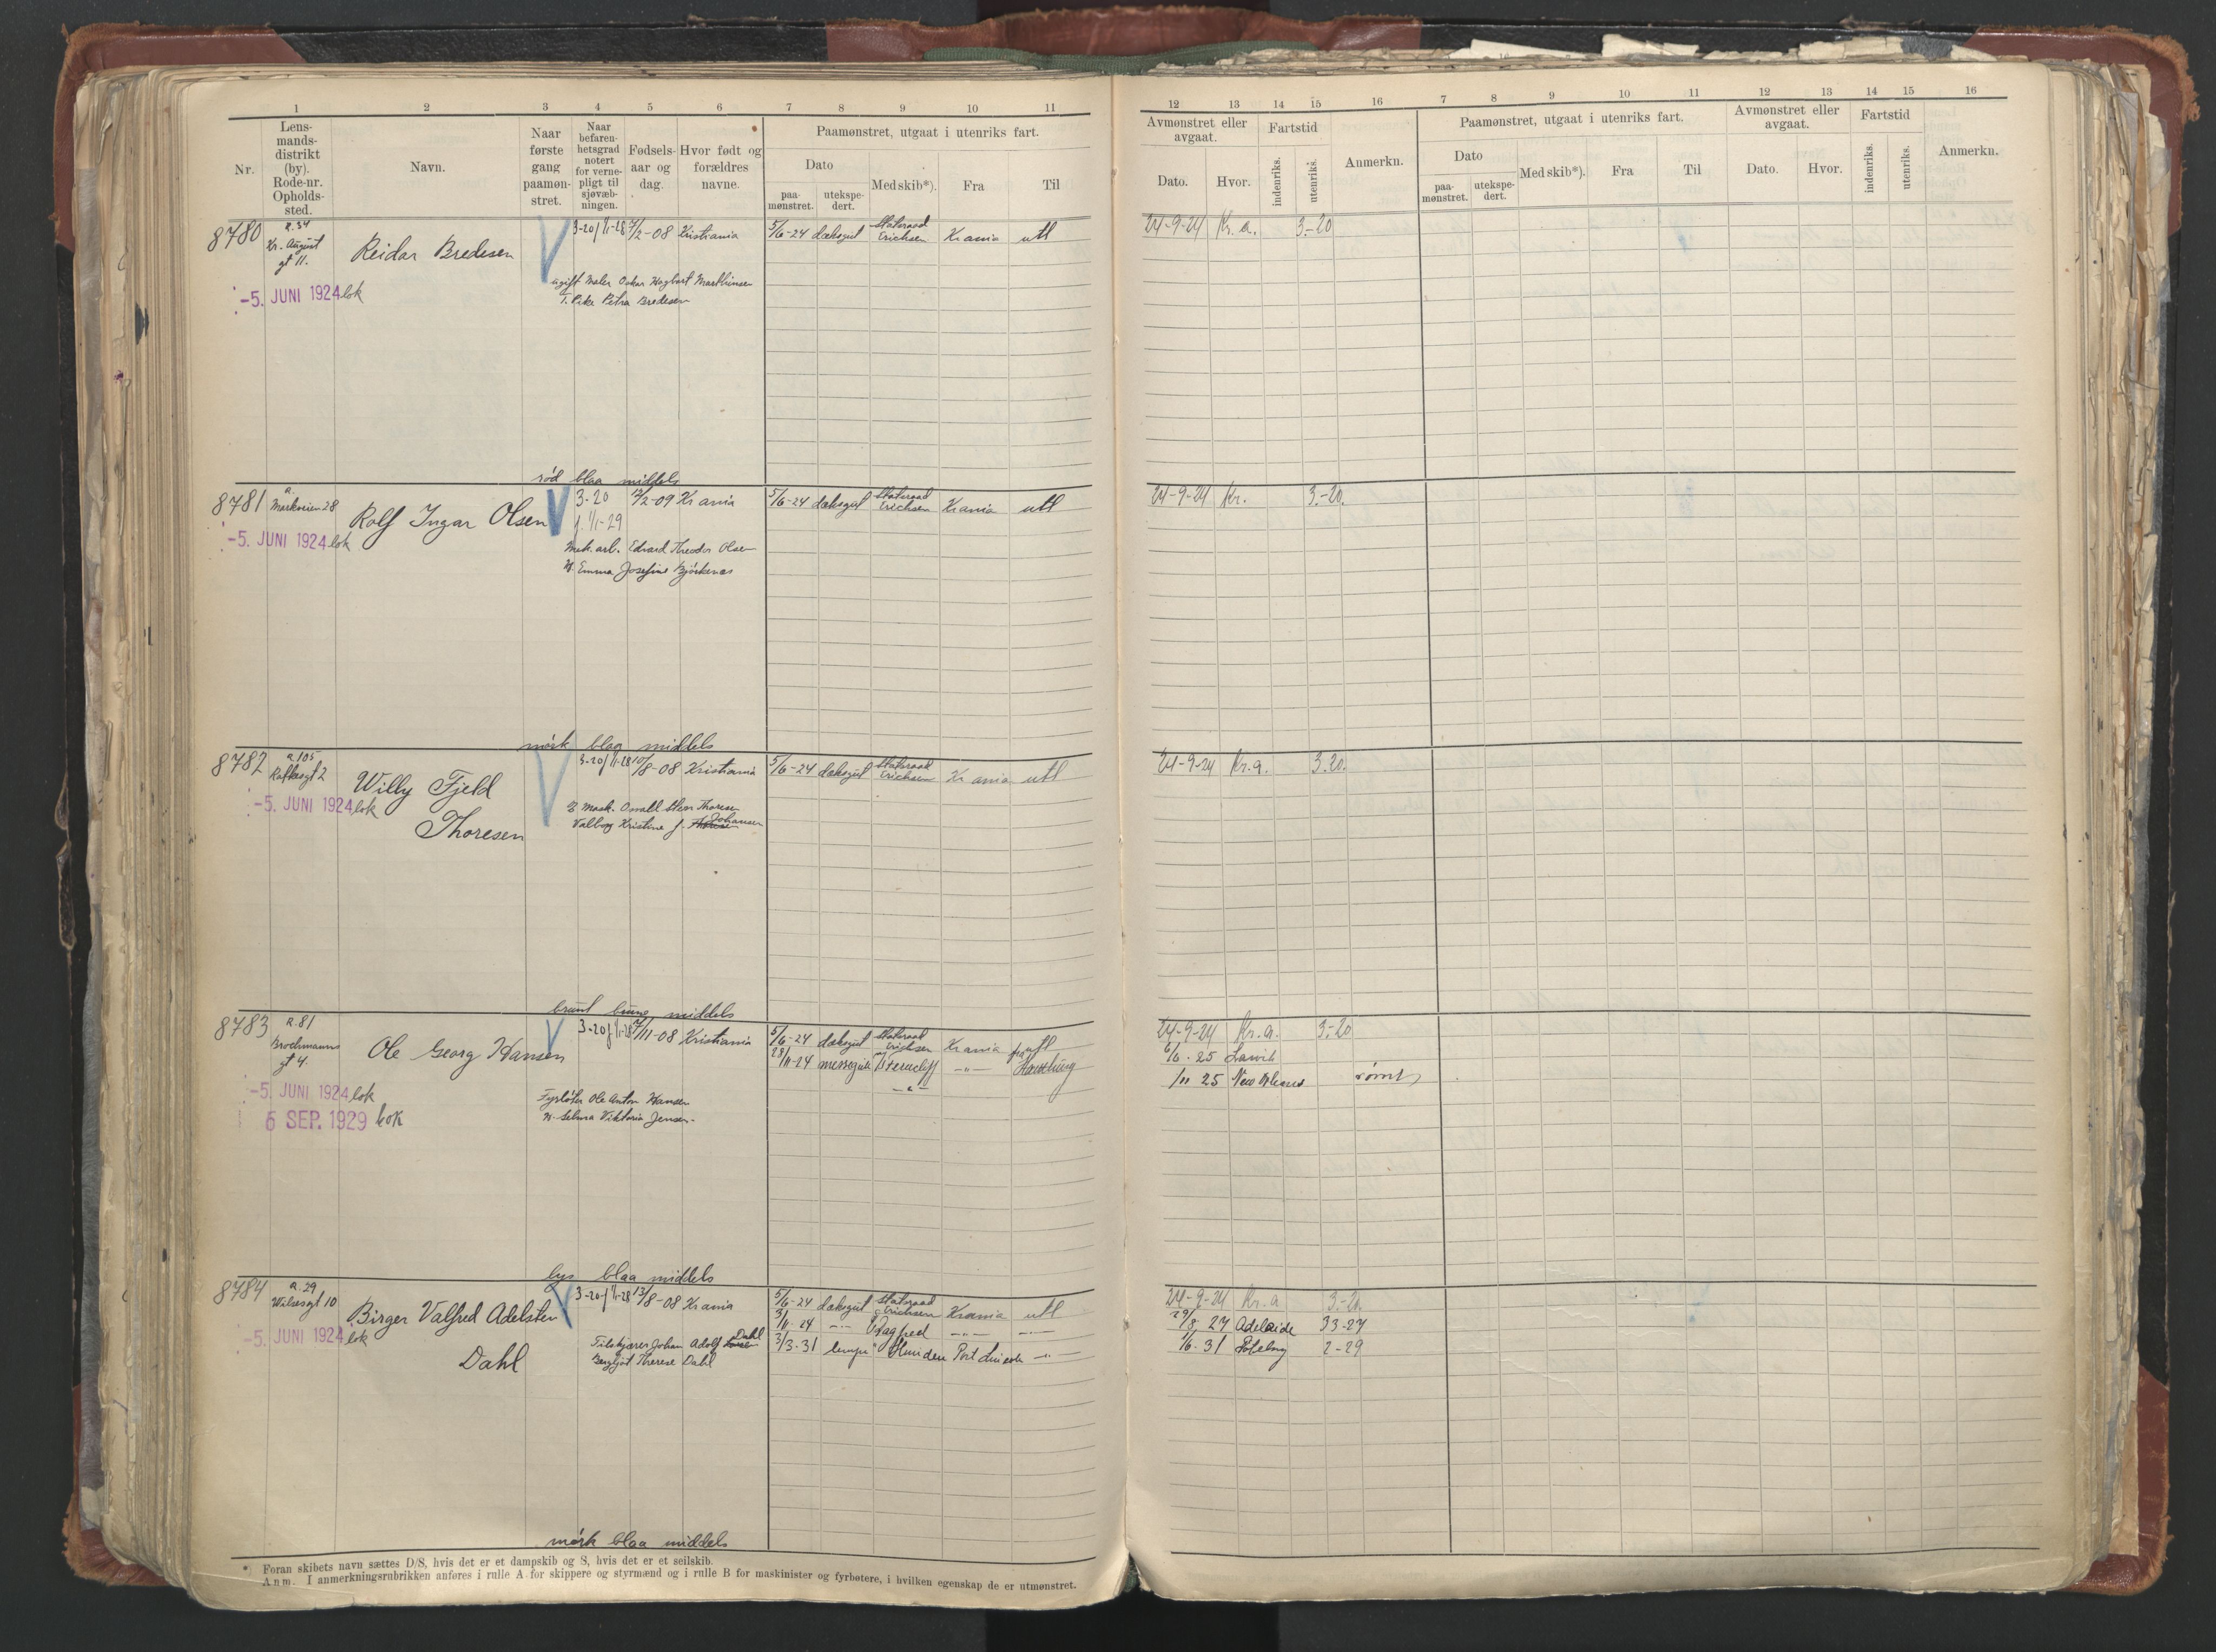 1 2 3 4 5 6 7 8 9 10 11
Nr.
Lens-
mands-
distrikt
(by).
Rode-nr.
Opholds-
sted.
Navn.
Naar
første
gang
paamøn-
stret.
Naar
befaren-
hetsgrad
notert
for verne-
pligt til
sjøvæb-
ningen.
Fødsels-
aar og
dag.
Hvor født og
forældres
navne.
Paamønstret, utgaat i utenriks fart.
Dato
paa-
mønstret.
utekspe-
dert.
Med skib*).
Fra
Til
8780
R. 34
Kr. August
gt 11.
Reidar Bredesen
-5. JUNI 1924 lok
3-20 f 1/1-28
7/2-08 Kristiania
ugift Maler Oskar Hagbart Marthinsen
T. Pike Petra Bredesen
5/6-24 dæksgut Statsraad Erichsen Krania utl
rød blaa middels
8781
Markveien 28
Rolf Ingar Olsen
-5. JUNI 1924 lok
3-20
f. 1/1-29
12/2-09 Krania
Mek. arb. Edvard Theodor Olsen
H. Emma Josefine Bjørkenes
5/6-24 dæksgut Statsraad Erichsen Krania utl
mørk blaa middels
8782
R 105
gt 2
Willy Fjeld
Thoresen
-5. JUNI 1924 lok
3-20 f 1/1-28
10/8-08 Kristiania
Mask. Thoresen
Valborg Kristine f. Johansen
5/6-24 dæksgut Statsraad Erichsen Krania utl
brunt brune middels
8783
R. 81
Brochmanns
gt 4.
Ole Georg Hansen
-5. JUNI 1924 lok
6 SEP. 1929 lok
3-20 f 1/1-28
/11-08 Kristiania
Fyrbøter Ole Anton Hansen
H. Selma Viktoria Jensen
5/6-24 dæksgut Statsraad Erichsen Krania utl
28/11-24 messegut Ferncliff -"-
-"-
lys blaa middels
8784
R. 29
Wilsesgt 10
Birger Valfred Adelsten
Dahl
-5. JUNI 1924 lok
3-20 f 1/1-28
13/8-08 Krania
Tilskjærer Johan Adolf Dahl
Bergljot Therese Dahl
5/6-24 dæksgut Statsraad Erichsen Krania utl
3/11-24 -"- Dagfred -"- -"-
3/3-31 Port Lincoln -"-
mørk blaa middels
* Foran skibets navn sættes D/S, hvis det er et dampskib og S, hvis det er et seilskib.
Anm. I anmerkningsrubrikken anføres i rulle A for skippere og styrmænd og i rulle B for maskinister og fyrbøtere, i hvilken egenskap de er utmønstret.
12 13 14 15 16 7 8 9 10 11 12 13 14 15 16
Avmønstret eller
avgaat.
Dato.
Hvor.
Fartstid
indenriks.
utenriks.
Anmerkn.
Paamønstret, utgaat i utenriks fart.
Dato
paa-
mønstret.
utekspe-
dert.
Med skib*).
Fra
Til
Avmønstret eller
avgaat.
Dato.
Hvor.
Fartstid
indenriks.
utenriks.
Anmerkn.
24-9-24 Kr.a. 3-20
24-9-24 Kr. 3-20.
24-9-24 Kr.a. 3.20.
24-9-24 Kr.a. 3-20
6/6-25 Larvik
/11 25 New Orleans rømt
24-9-24 Kr.a 3-20.
29/8 27 Adelaide 33-27
1/6-31 2-29